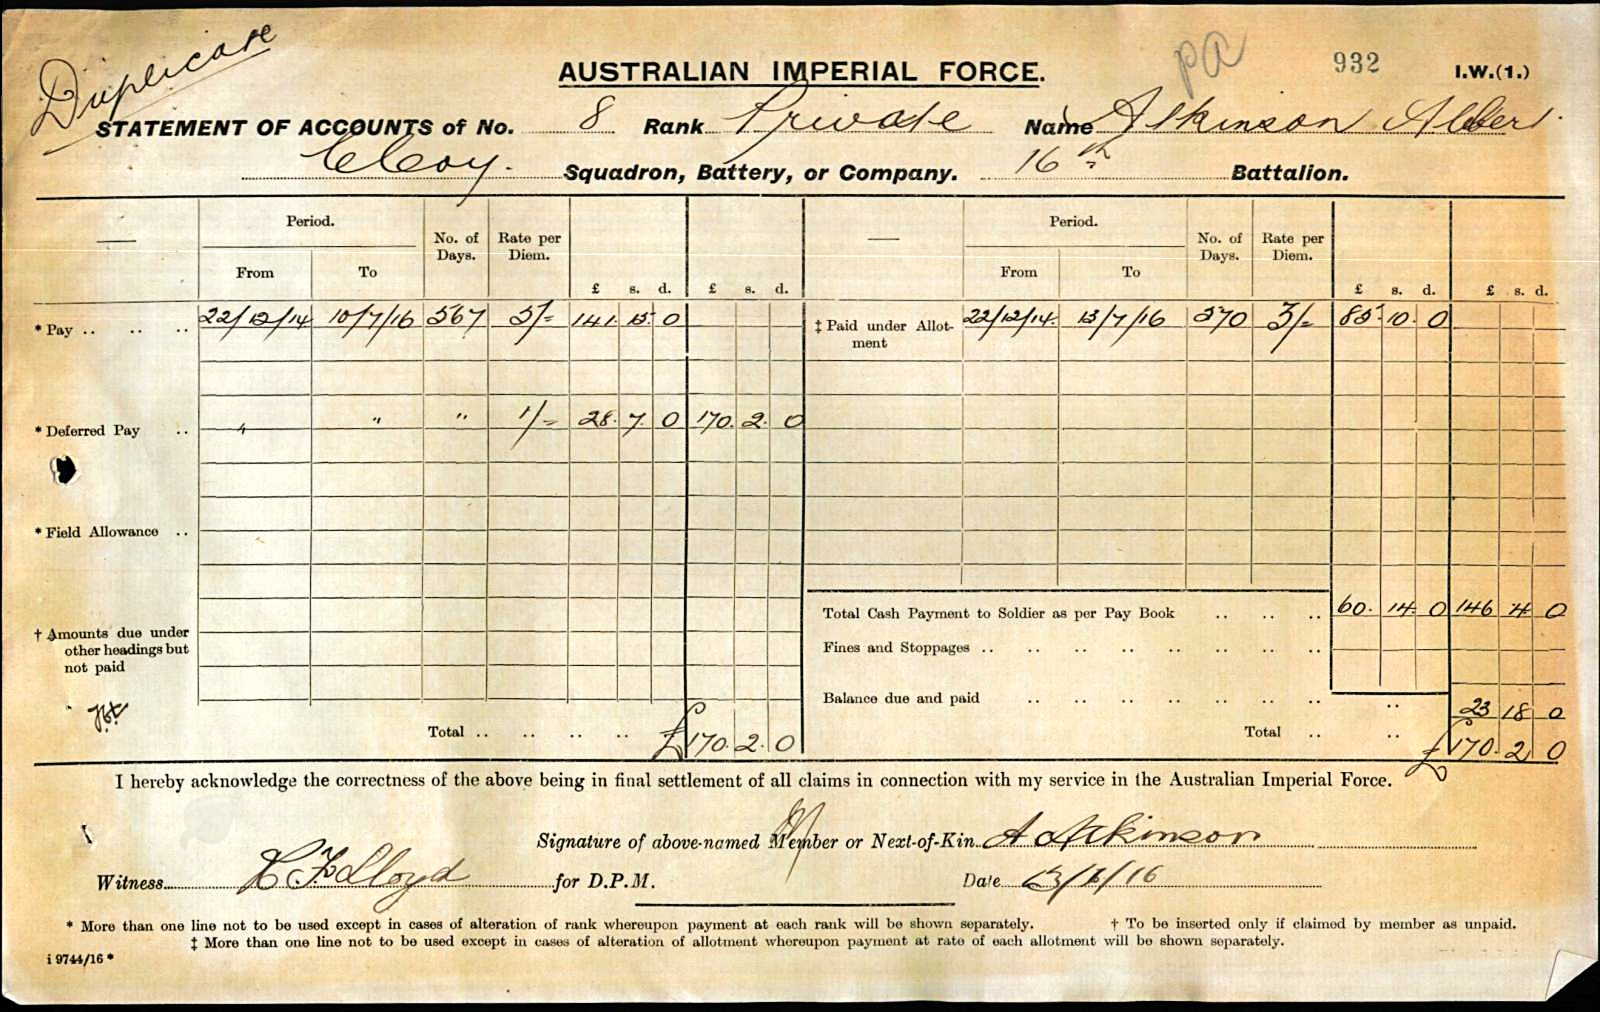 Duplicate
pa
932
AUSTRALIAN IMPERIAL FORCE.
I.W.(1.)
STATEMENT OF ACCOUNTS of No. 8 Rank Private Name Atkinson Albert.
C Coy. Squadron, Battery, or Company. 16th Battalion.
Period. No. of Days. Rate per Diem. Period. No. of Days. Rate per Diem.
From To £ s. d. £ s. d. From To £ s. d. £ s. d.
* Pay .. .. .. 22/12/14 10/7/16 567 5/= 141. 15. 0 ‡ Paid under Allot-ment 22/12/14. 13/7/16 570 3/= 85. 10. 0
* Deferred Pay .. " " " 1/= 28. 7. 0 170. 2. 0
* Field Allowance ..
Total Cash Payment to Soldier as per Pay Book .. .. .. 60. 14. 0 146 4 0
† Amounts due under other headings but not paid
Fines and Stoppages .. .. .. .. .. .. ..
Balance due and paid .. .. .. .. .. .. 23 18 0
Total .. .. .. .. £170. 2. 0 Total .. .. £170. 2 0
I hereby acknowledge the correctness of the above being in final settlement of all claims in connection with my service in the Australian Imperial Force.
Signature of above-named Member or Next-of-Kin A Atkinson
Witness H F Lloyd for D.P.M. Date 13/7/16
* More than one line not to be used except in cases of alteration of rank whereupon payment at each rank will be shown separately. † To be inserted only if claimed by member as unpaid.
‡ More than one line not to be used except in cases of alteration of allotment whereupon payment at rate of each allotment will be shown separately.
i 9744/16 *